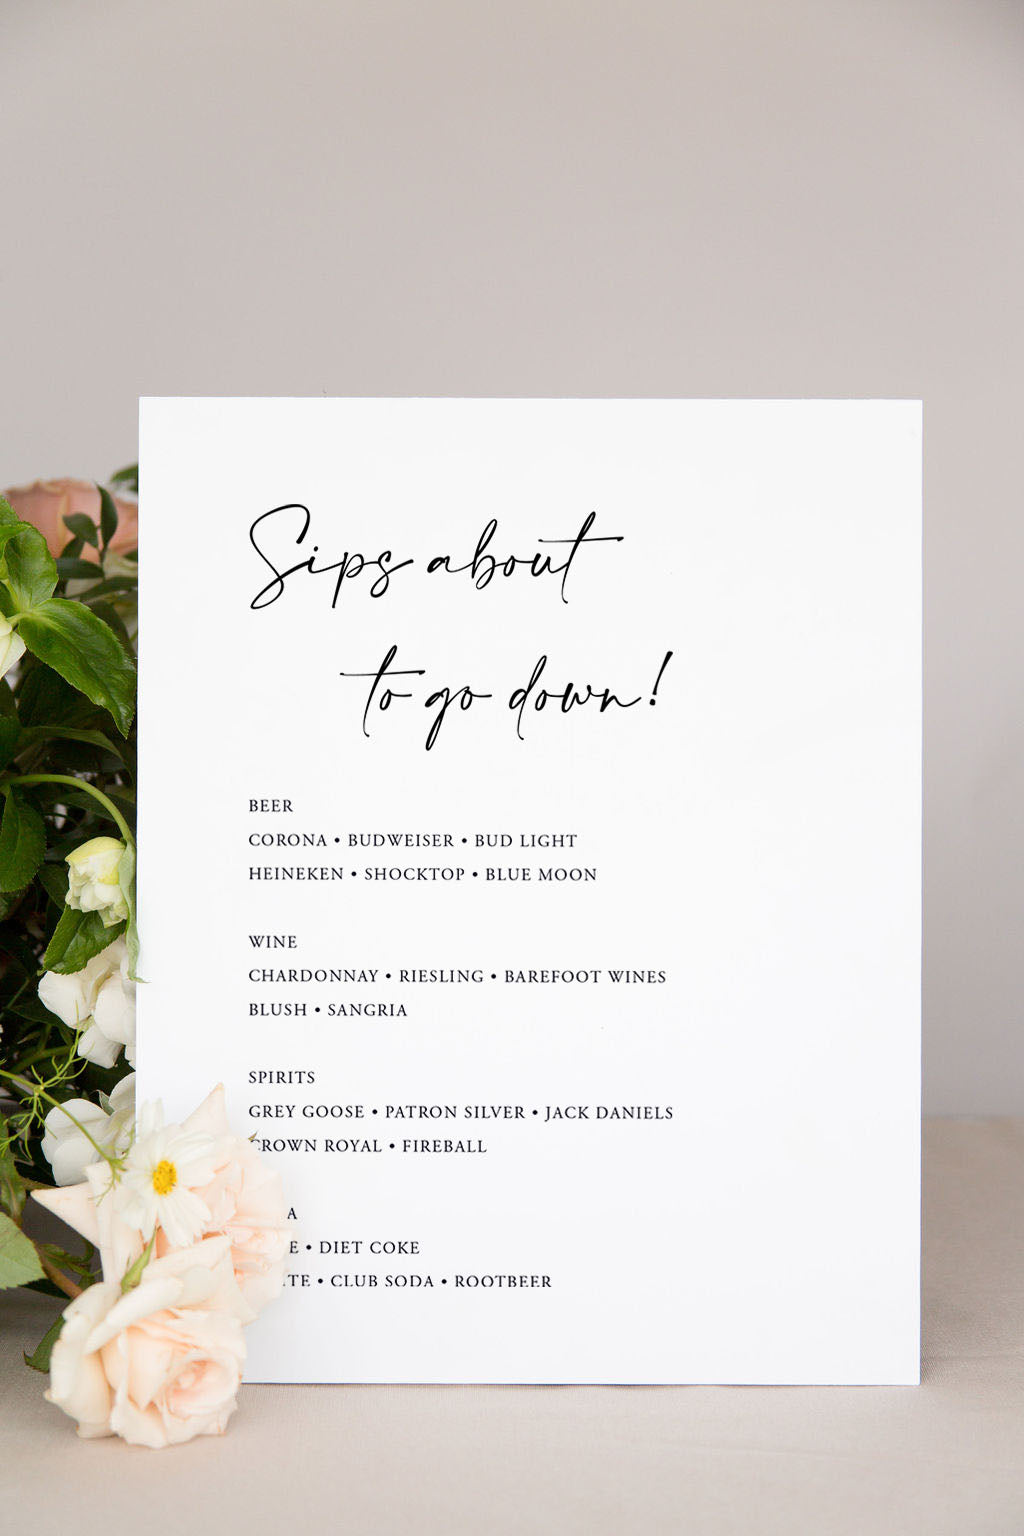 Sips about
to go down!
BEER
CORONA • BUDWEISER • BUD LIGHT
HEINEKEN • SHOCKTOP • BLUE MOON
WINE
CHARDONNAY • RIESLING • BAREFOOT WINES
BLUSH • SANGRIA
SPIRITS
GREY GOOSE • PATRON SILVER • JACK DANIELS
CROWN ROYAL • FIREBALL
• DIET COKE
• CLUB SODA • ROOTBEER